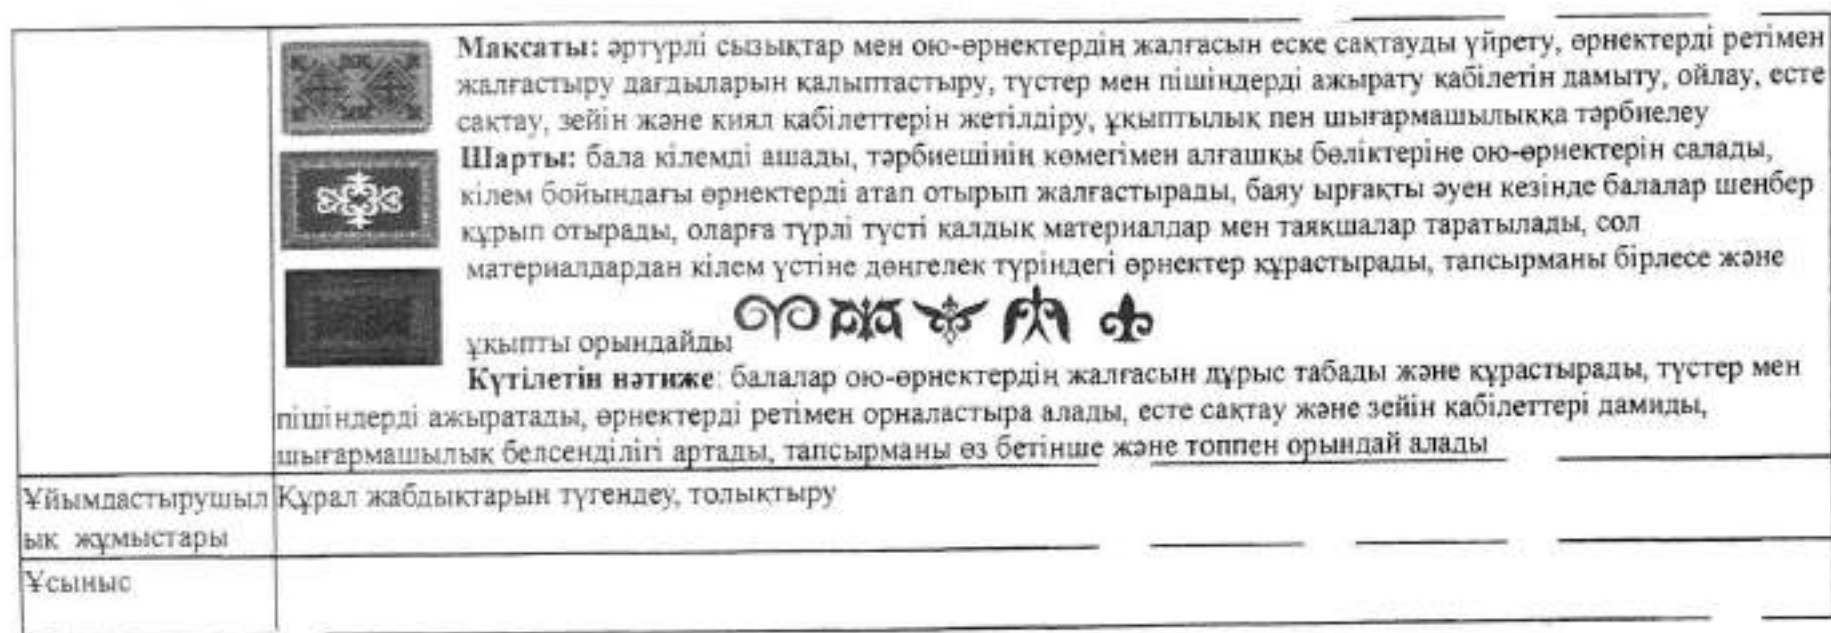 Мақсаты: әртүрлі сызықтар мен ою-өрнектердің жалғасын еске сақтауды үйрету, өрнектерді ретімен
жалғастыру дағдыларын қалыптастыру, түстер мен пішіндерді ажырату қабілетін дамыту, ойлау, есте
сақтау, зейін және қиял қабілеттерін жетілдіру, ұқыптылық пен шығармашылыққа тәрбиелеу
Шарты: бала кілемді ашады, тәрбиешінің көмегімен алғашқы бөліктеріне ою-өрнектерін салады,
кілем бойындағы өрнектерді атап отырып жалғастырады, баяу ырғақты әуен кезінде балалар шеңбер
құрып отырады, оларға түрлі түсті қалдық материалдар мен таяқшалар таратылады, сол
материалдардан кілем үстіне дөңгелек түріндегі өрнектер құрастырады, тапсырманы бірлесе және
ұқыпты орындайды
Күтілетін нәтиже: балалар ою-өрнектердің жалғасын дұрыс табады және құрастырады, түстер мен
пішіндерді ажыратады, өрнектерді ретімен орналастыра алады, есте сақтау және зейін қабілеттері дамиды,
шығармашылық белсенділігі артады, тапсырманы өз бетінше және топпен орындай алады
Ұйымдастырушыл Құрал жабдықтарын түгендеу, толықтыру
ық жұмыстары
Ұсыныс